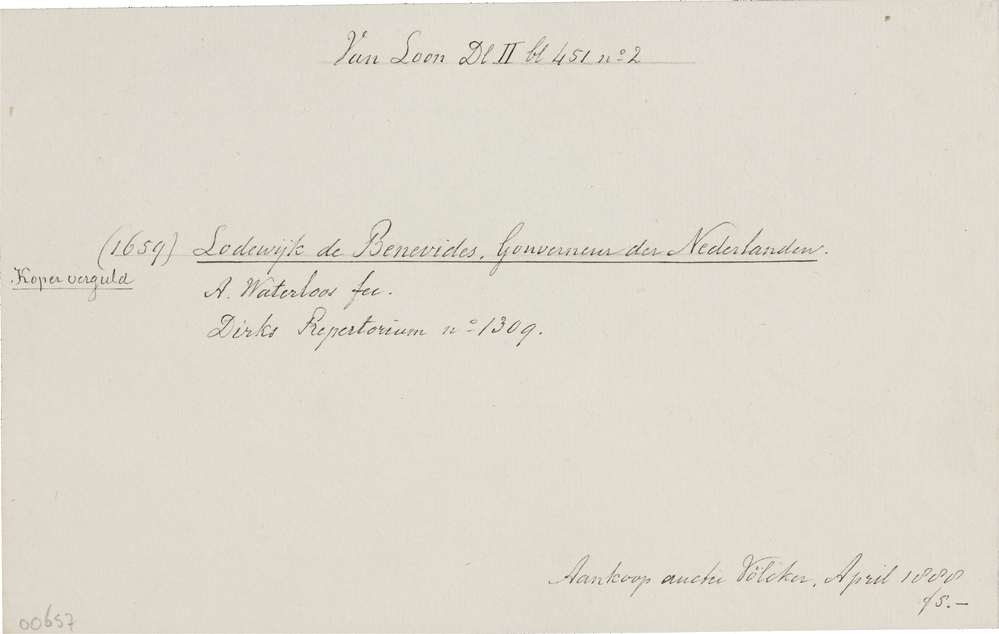 Van Loon Dl II bl 451 nº 2
(1659) Lodewijk de Benevides, Gouverneur der Nederlanden.
Koper verguld
A. Waterloos fec.
Dirks Repertorium nº 1309.
Aankoop auctie Völcker, April 1888
ƒ5.—
00657